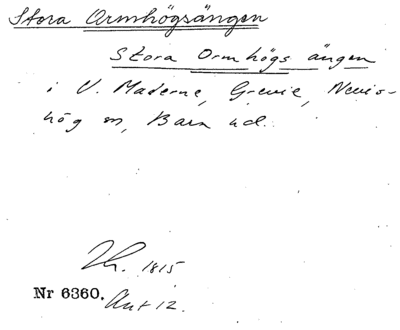 Stora Ormhögsängen
Stora Ormhögs ängen
i V. Maderne, Grevie, Newis-
hög m, Bara hd.
1815
Nr 6360. Akt 12.